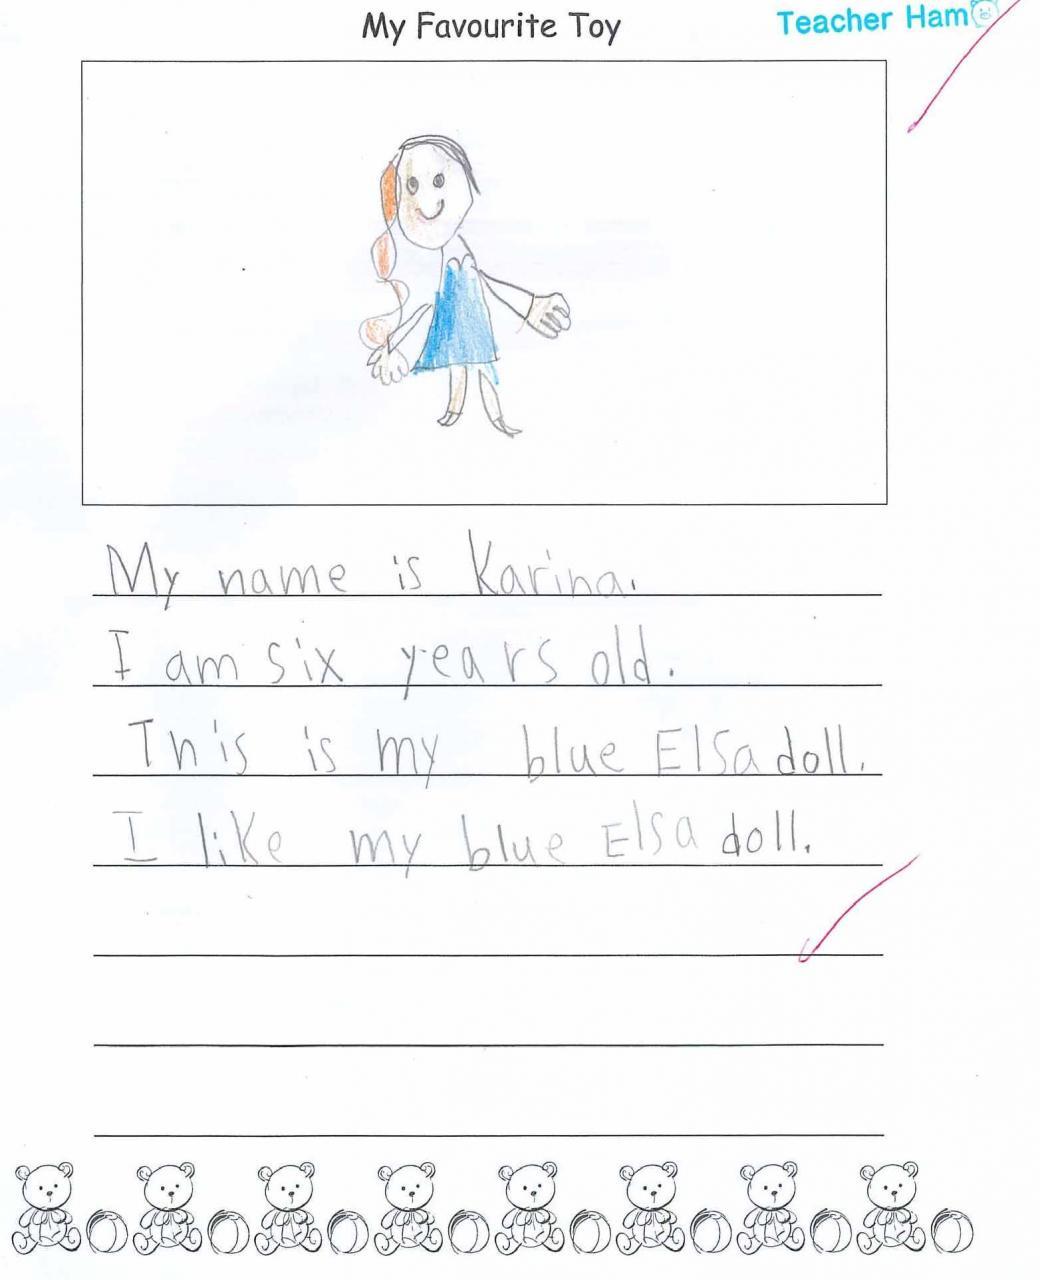 My Favourite Toy
Teacher Ham
My name is Karina.
I am six years old.
This is my blue Elsa doll.
I like my blue Elsa doll.